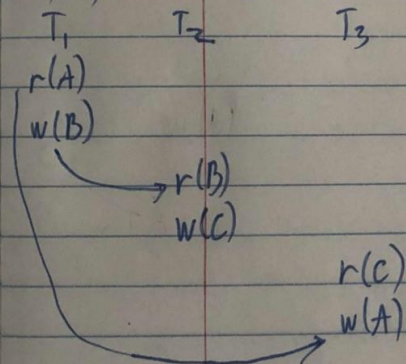 T1 T2 T3
r(A)
w(B)
r(B)
w(C)
r(C)
w(A)